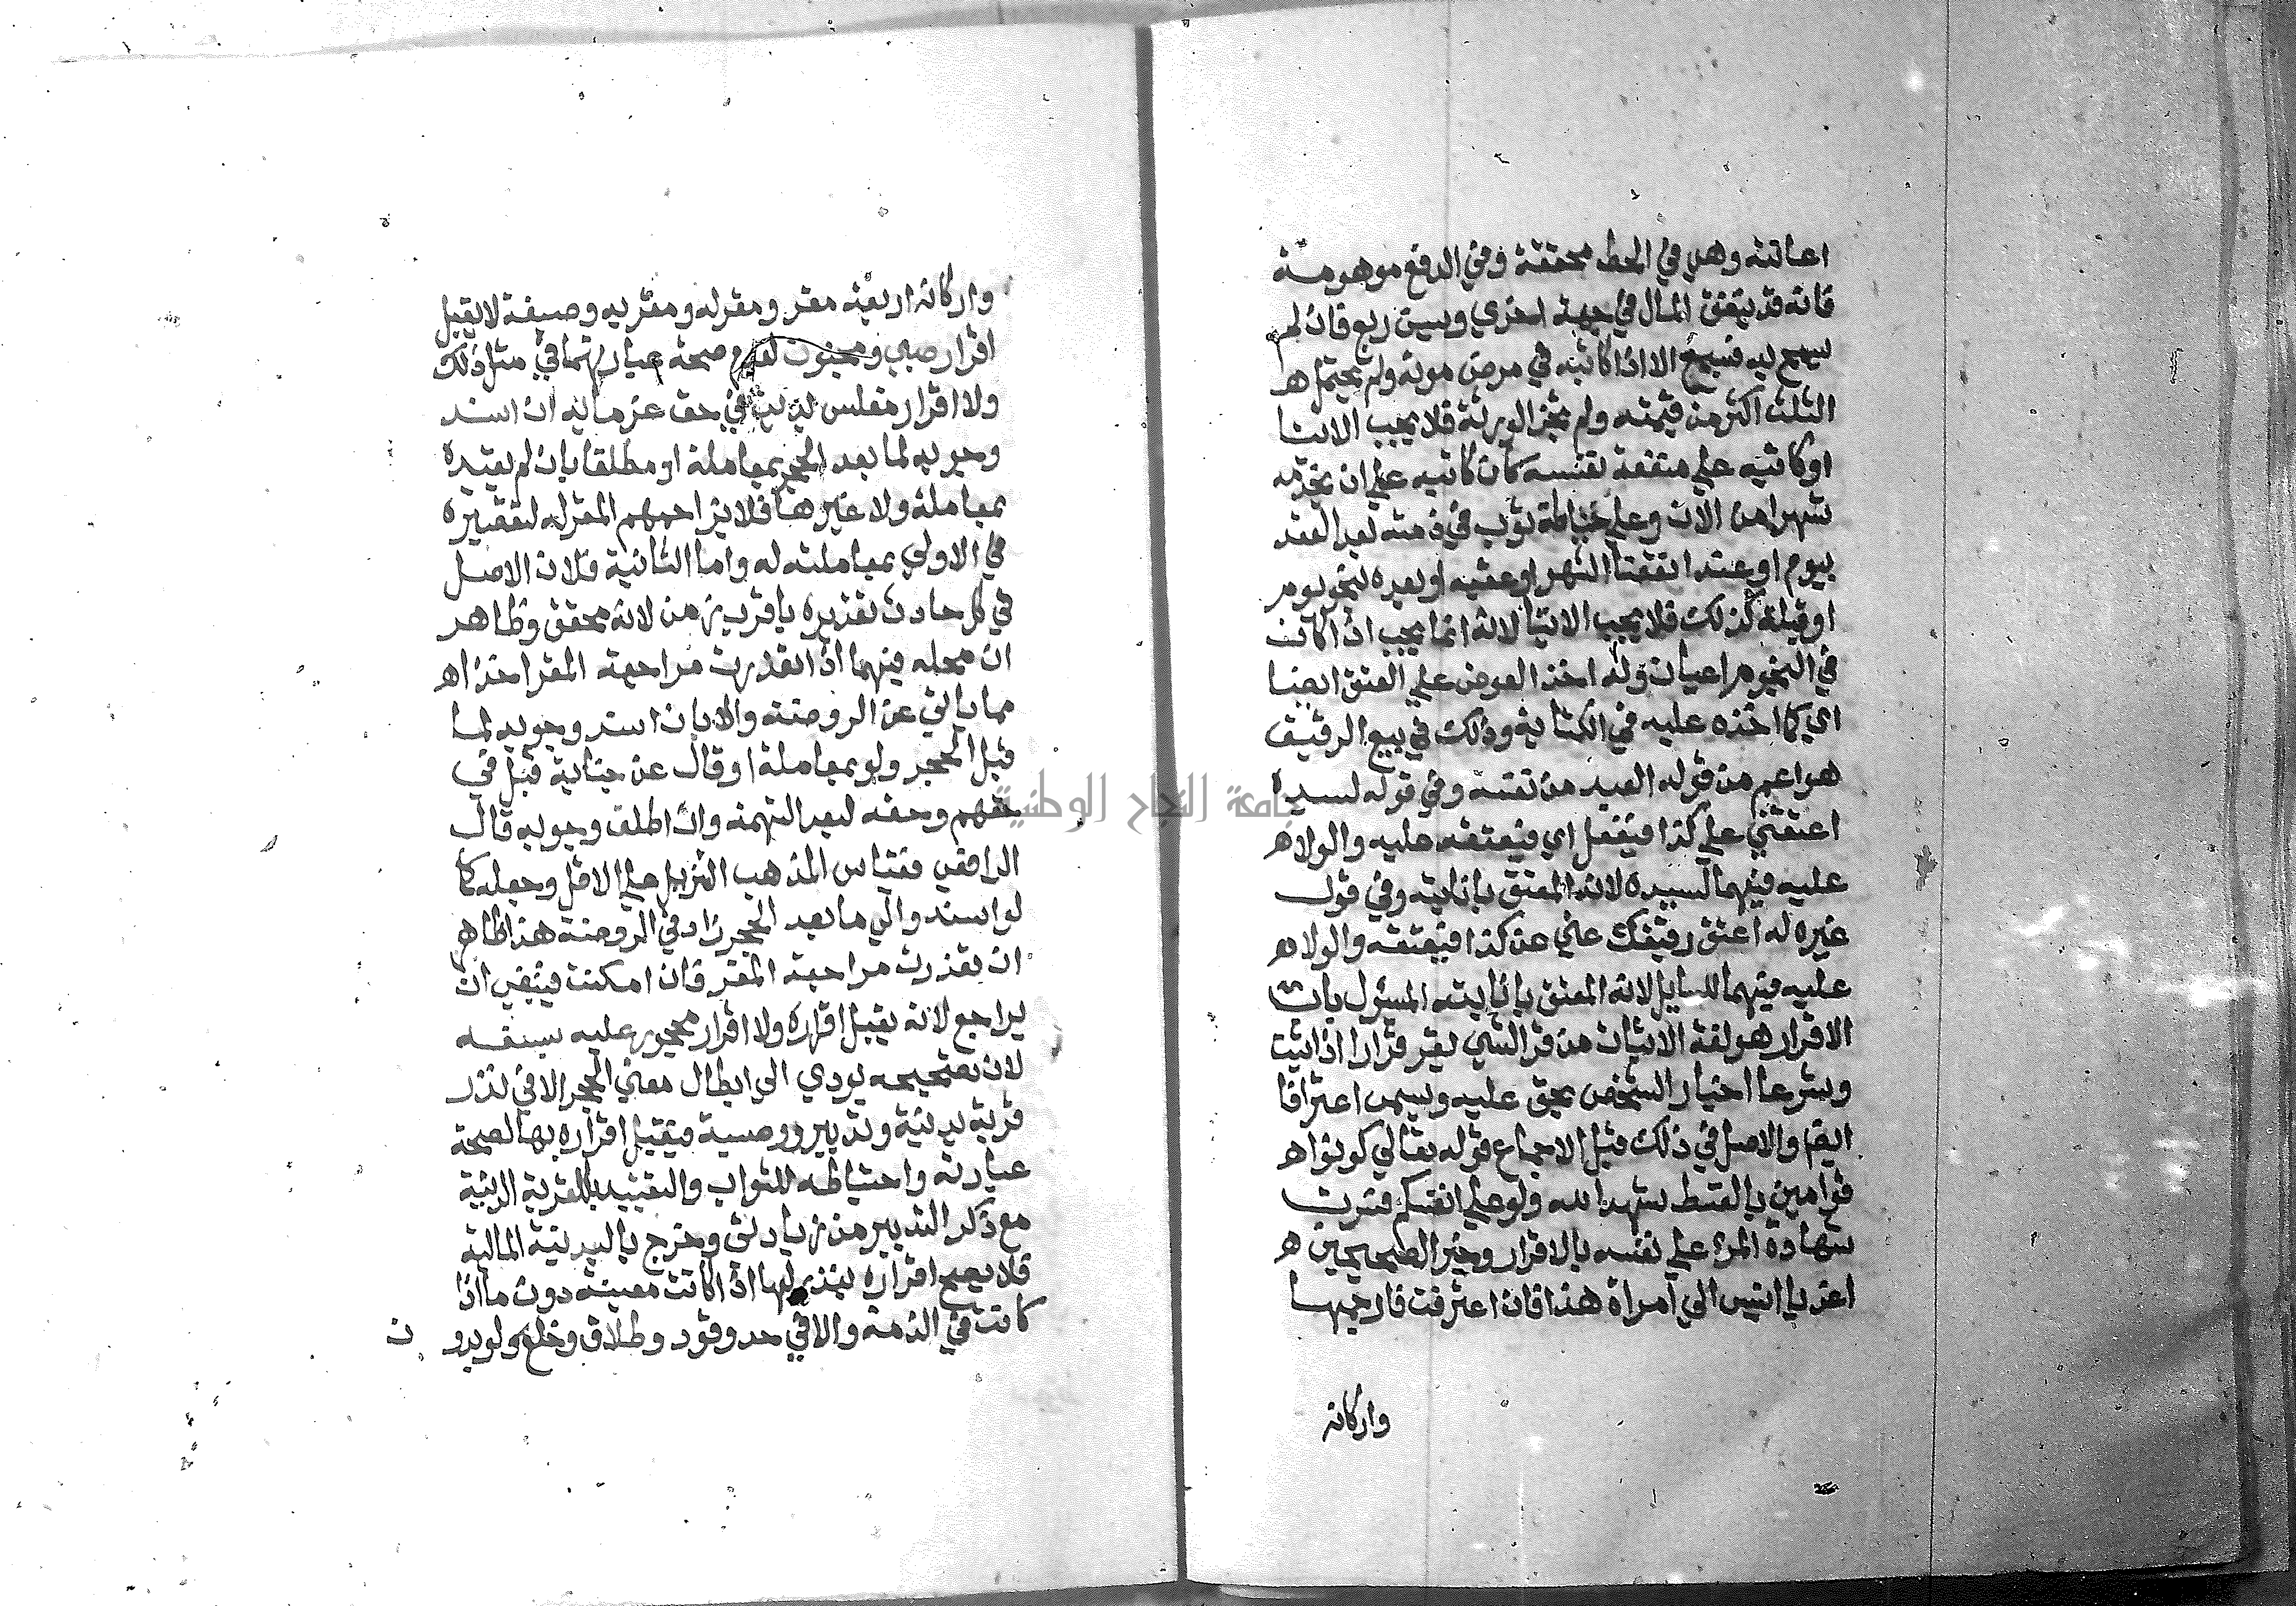 اعانته وهي في الحط محققة وفي الدفع موهومة
فانه قد ينفق المال في جهة اخري وسبق ربع فان لم
يسمح به فسبع الا اذا كاتبه في مرض موته ولم يحتمل ه
الثلث اكثر من قيمته ولم تجز الورثة فلا يجب الايتا
او كاتبه علي منفعة نفسه كان كاتبه علي ان يخدمه
شهرا من الان وعلي خياطة ثوب في ذمته بعد العقد
بيوم او عند انقضا الشهر او عقبه او بعده بنحو يوم
او قبله كذلك فلا يجب الايتا لانه انما يجب اذا كانت
في النجوم اعيان وله اخذ العوض علي العتق ايضا
اي كما اخذه عليه في الكتابة وذلك في بيع الرقيق
هو اعم من قوله العبد من نفسه وفي قوله لسيده
اعتقني علي كذا فيفعل اي فيعتقه عليه والولاه
عليه فيهما لسيده لانه المعتق باثابته وفي قول
غيره له اعتق رقيقك عني عن كذا فيعتقه والولاه
عليه فيهما للسايل لانه المعتق باثابته المسئول باب
الاقرار هو لغة الاثبات من قر الشي يقر قرارا اذا ثبت
وشرعا اخبار الشخص بحق عليه ويسمي اعترافا
ايضا والاصل في ذلك قبل الاجماع قوله تعالي كونواه
قوامين بالقسط شهدا لله ولو علي انفسكم فسرت
شهادة المرء علي نفسه بالاقرار وخبر الصحيحين ه
اغد يا انيس الي امراة هذا فان اعترفت فارجمها
واركانه
واركانه اربعة مقر ومقر له ومقر به وصيغة لا يقبل
اقرار صبي ومجنون لعدم صحة عبارتهما في مثل ذلك
ولا اقرار مفلس بدين في حق غرمايه ان اسند
وجوبه لما بعد الحجر بمعاملة او مطلقا بان لم يقيده
بمعاملة ولا غيرها فلا يزاحمهم المقر له لتقصيره
في الاولي بمعاملته له واما الثانية فلان الاصل
في كل حادث تقديره باقرب زمن لانه محقق وظاهر
ان محله فيهما اذا تعذرت مراجعة المقر اخذا ه
مما ياتي عن الروضة والا بان اسند وجوبه لما
قبل الحجر ولو بمعاملة او قال عن جناية قبل في
حقهم وحقه لبعد التهمة وان اطلق وجوبه قال
الرافعي فقياس المذهب التنزيل علي الاقل وجعله كما
لو اسنده الي ما بعد الحجر زاد في الروضة هذا ظاهر
ان تعذرت مراجعة المقر فان امكنت فينبغي ان
يراجع لانه يقبل اقراره ولا اقرار محجور عليه بسفه
لان تصحيحه يودي الي ابطال معني الحجر الا في نذر
قربة بدنية وتدبير ووصية فيقبل اقراره بها لصحة
عبارته واحتياطه للثواب والتقييد بالقربة البدنية
مع ذكر التدبير من زيادتي وخرج بالبدنية المالية
فلا يصح اقراره بنذرلها اذا كانت معينة دون ما اذا
كانت في الذمة والا في حد وقود وطلاق وخلع ولو بدو ن
جامعة النجاح الوطنية